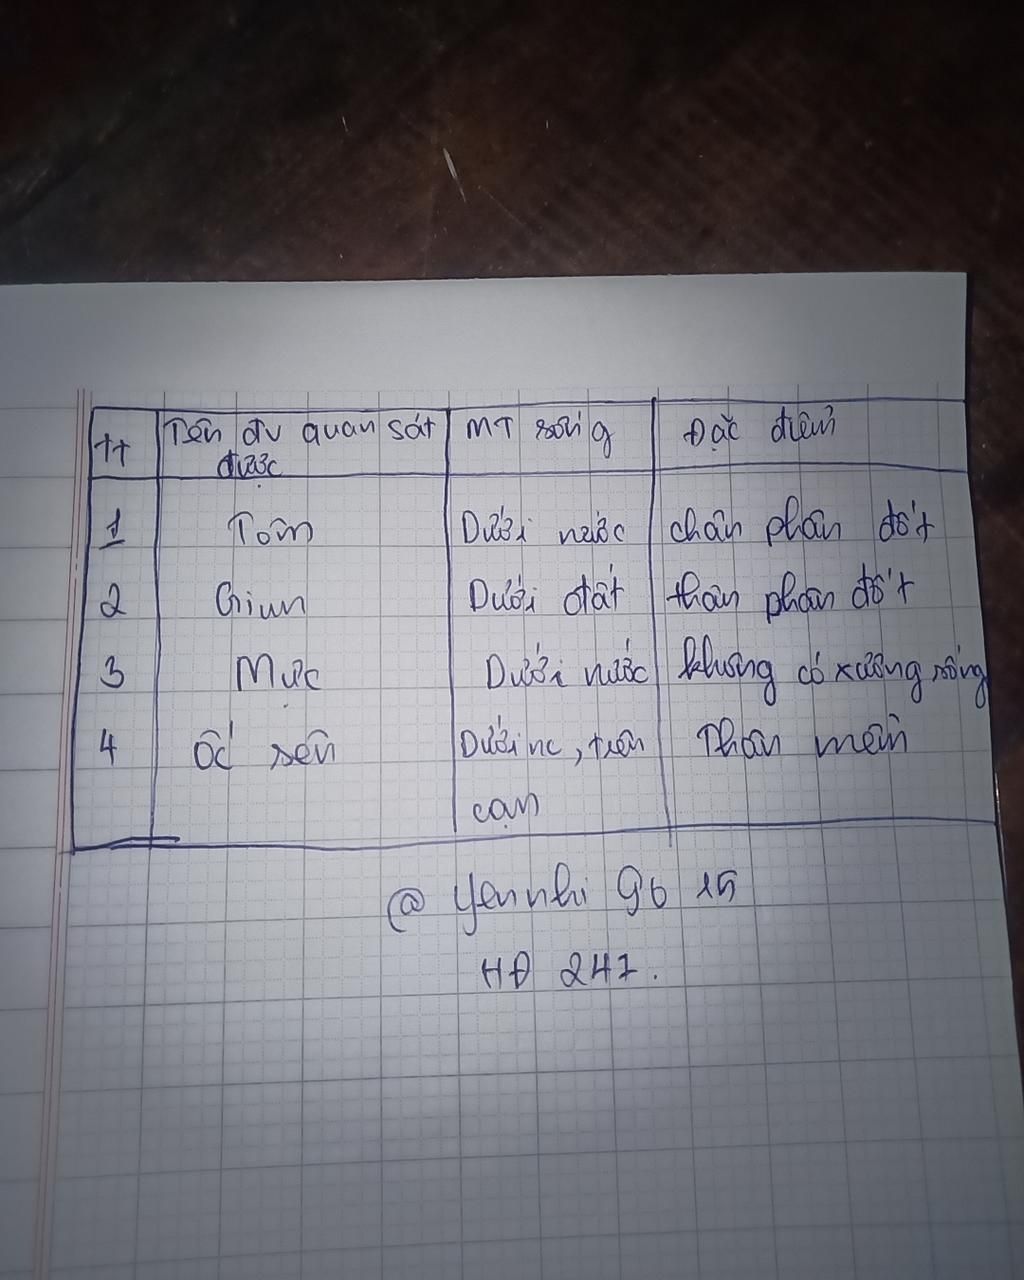 TT Tên đv quan sát được MT sống Đặc điểm
1 Tôm Dưới nước chân phân đốt
2 Giun Dưới đất thân phân đốt
3 Mực Dưới nước không có xương sống
4 Ốc sên Dưới nc, trên cạn Thân mềm
@ yennhi 96 15
HĐ 247.